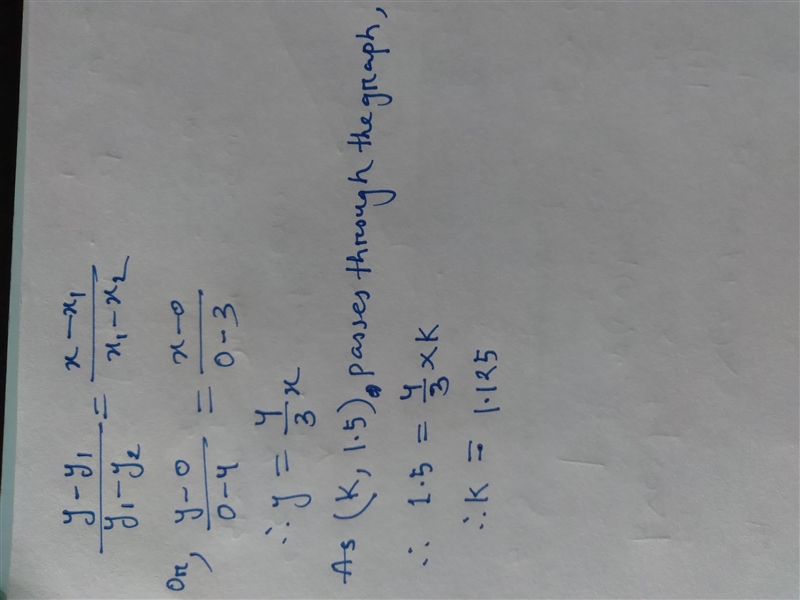 y-y₁/y₁-y₂ = x-x₁/x₁-x₂
Or, y-0/0-4 = x-0/0-3
∴ y = 4/3 x
As (K, 1.5), passes through the graph,
∴ 1.5 = 4/3 x K
∴ K = 1.125